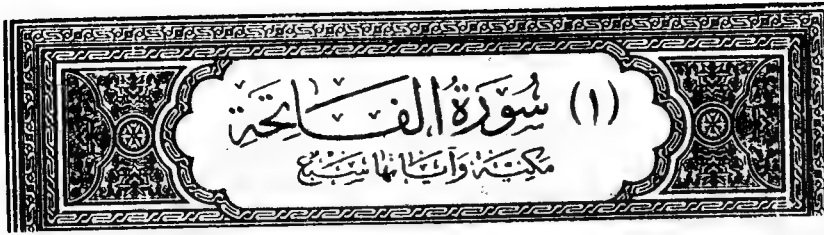 (١) سُورَةُ الْفَاتِحَةِ
مَكِّيَّةٌ وَآيَاتُهَا سَبْعٌ